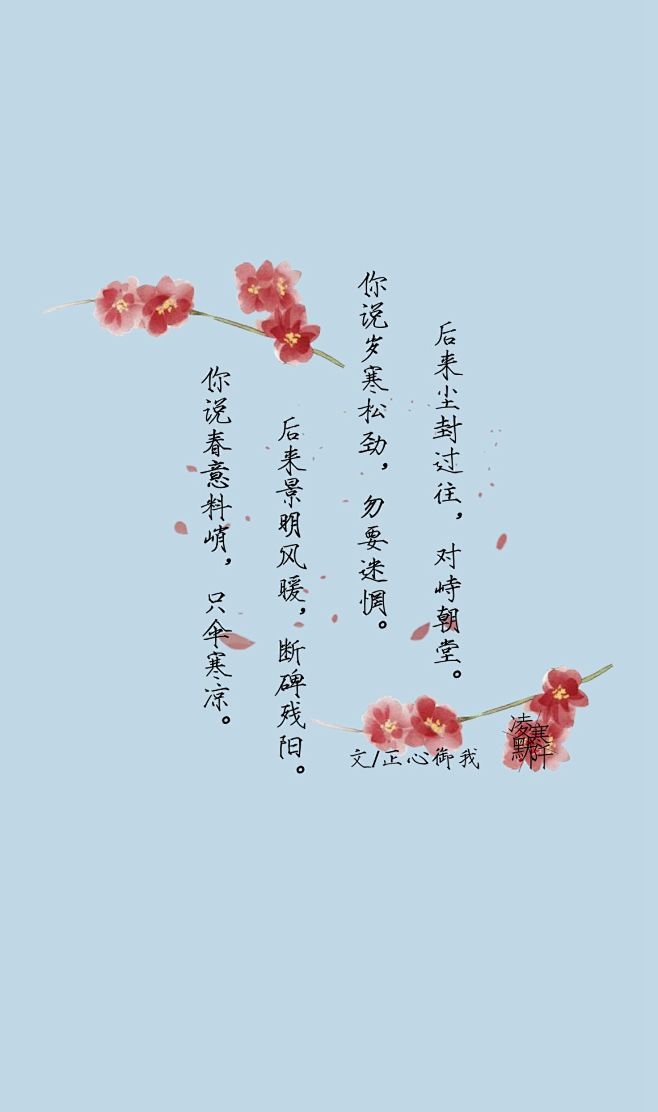 你说春意料峭，只伞寒凉。
后来景明风暖，断碑残阳。
你说岁寒松劲，勿要迷惘。
后来尘封过往，对峙朝堂。
文/正心御我
凌寒
默阡